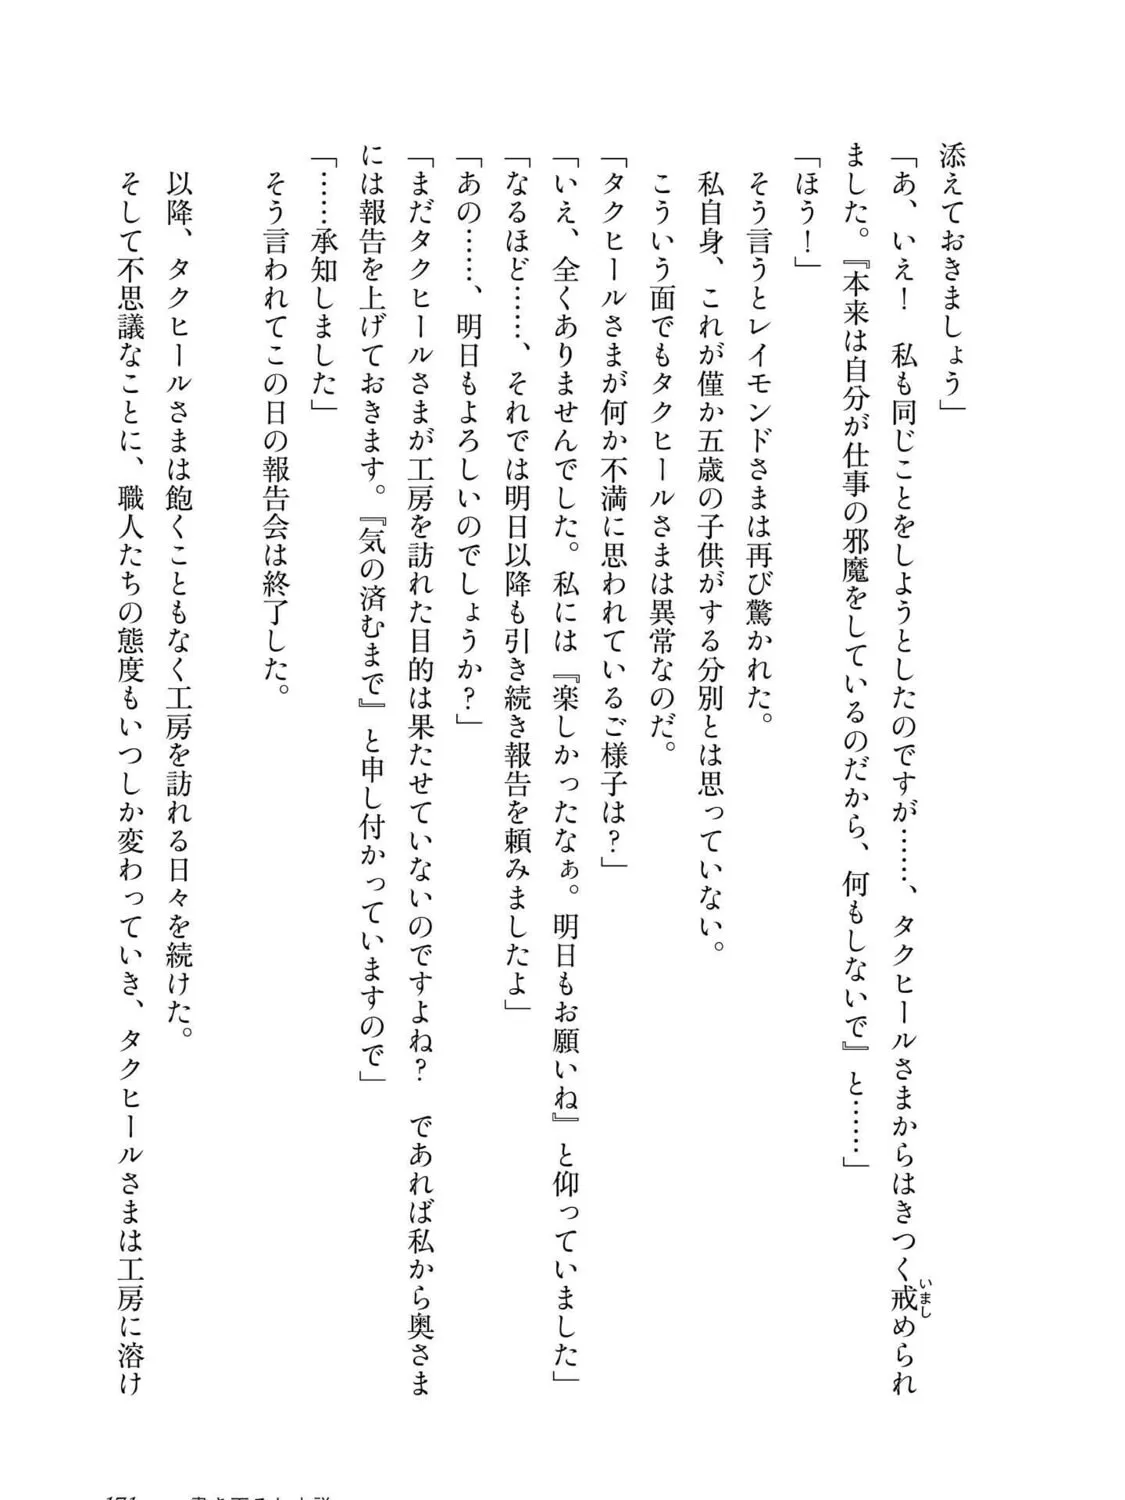 添えておきましょう」
「あ、いえ！　私も同じことをしようとしたのですが……、タクヒールさまからはきつく戒められ
ました。『本来は自分が仕事の邪魔をしているのだから、何もしないで』と……」
「ほう！」
そう言うとレイモンドさまは再び驚かれた。
私自身、これが僅か五歳の子供がする分別とは思っていない。
こういう面でもタクヒールさまは異常なのだ。
「タクヒールさまが何か不満に思われているご様子は？」
「いえ、全くありませんでした。私には『楽しかったなぁ。明日もお願いね』と仰っていました」
「なるほど……、それでは明日以降も引き続き報告を頼みましたよ」
「あの……、明日もよろしいのでしょうか？」
「まだタクヒールさまが工房を訪れた目的は果たせていないのですよね？　であれば私から奥さま
には報告を上げておきます。『気の済むまで』と申し付かっていますので」
「……承知しました」
そう言われてこの日の報告会は終了した。
以降、タクヒールさまは飽くこともなく工房を訪れる日々を続けた。
そして不思議なことに、職人たちの態度もいつしか変わっていき、タクヒールさまは工房に溶け